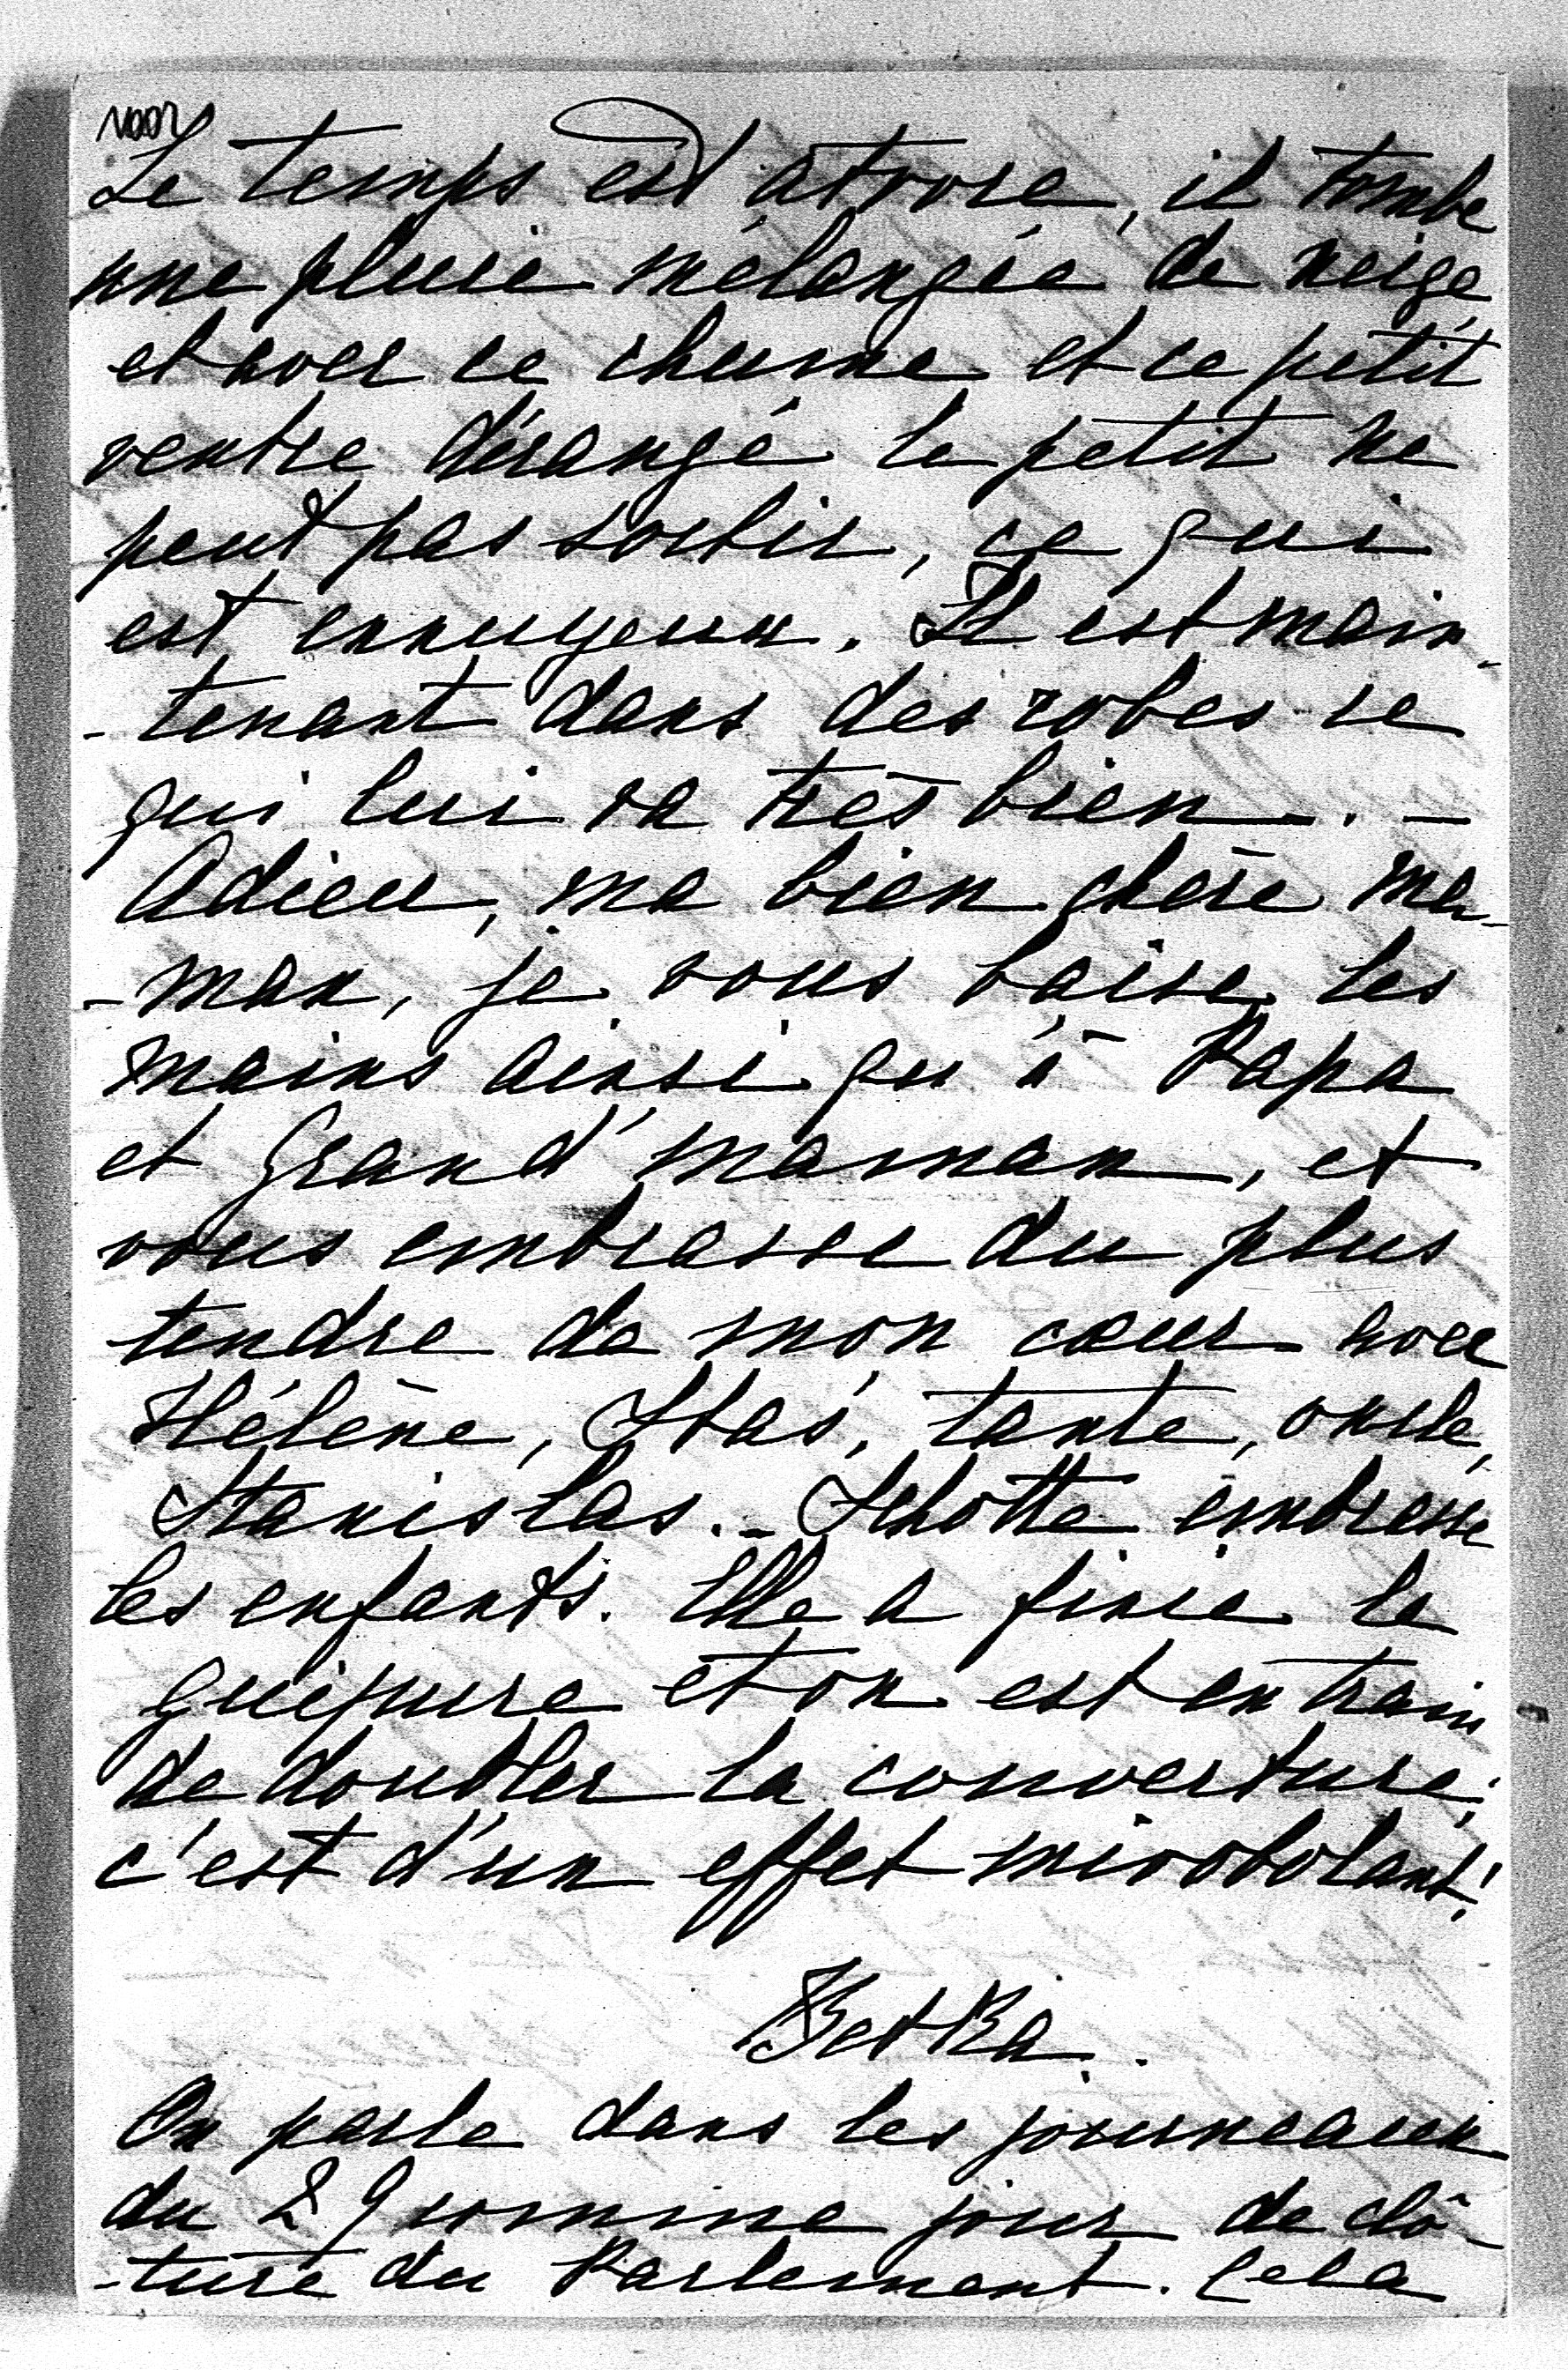 Le temps est atroce, il tombe
une pluie mélangée de neige
et avec ce rhume et ce petit
ventre dérangé le petit ne
peut pas sortir, ce qui
est ennuyeux. Il est main-
-tenant dans des robes ce
qui lui va très bien. -
Adieu, ma bien chère ma-
-man, je vous baise les
mains ainsi qu'à Papa
et Grand'maman, et
vous embrasse du plus
tendre de mon cœur avec
Hélène, Staś, tante, oncle,
Stanislas. - Schotte embrasse
les enfants. Elle a finie la
guipure et on est en train
de doubler la couverture;
c'est d'un effet mirobolant!
Betka.
On parle dans les journeaux
du 29 comme jour de clô-
-ture du Parlement. Cela